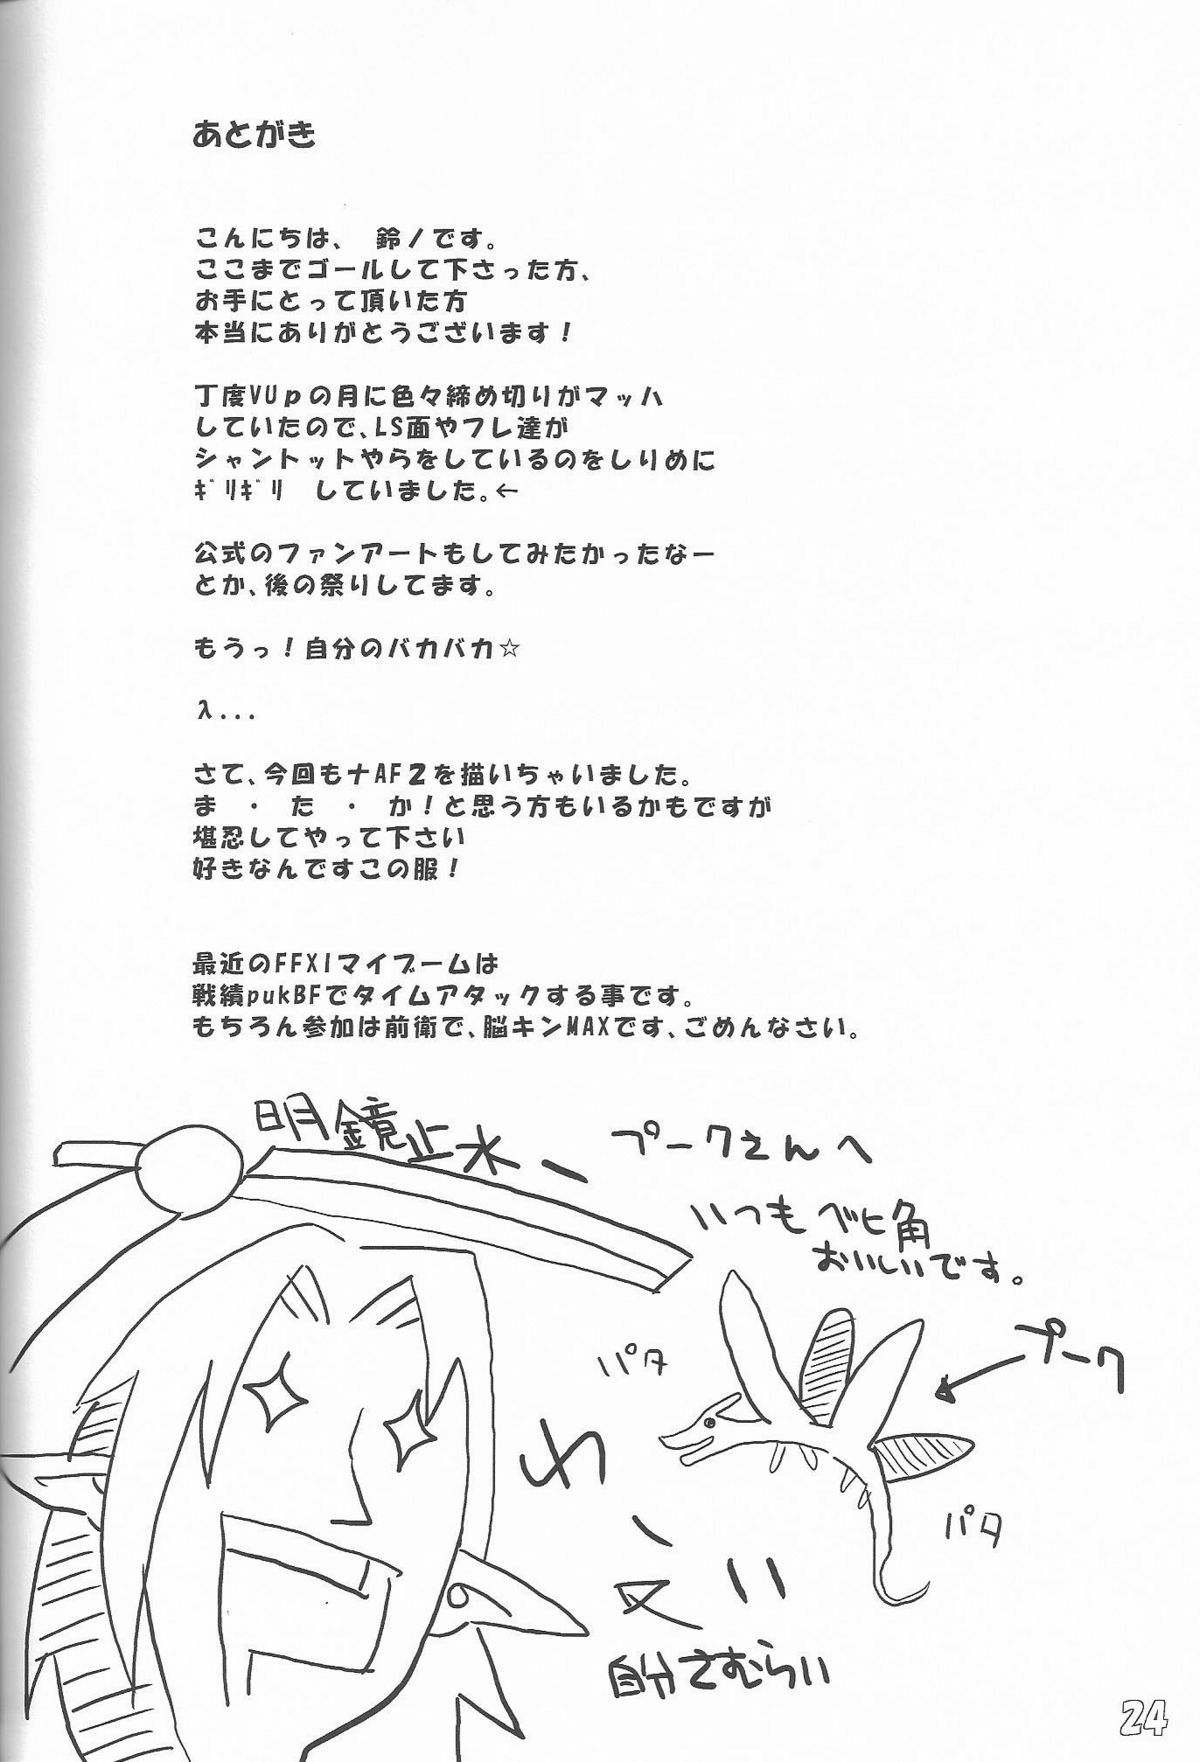 あとがき
こんにちは、 鈴ノです。
ここまでゴールして下さった方、
お手にとって頂いた方
本当にありがとうございます！
丁度VUpの月に色々締め切りがマッハ
していたので、LS面やフレ達が
シャントットやらをしているのをしりめに
ｷﾞﾘｷﾞﾘ していました。←
公式のファンアートもしてみたかったなー
とか、後の祭りしてます。
もうっ！自分のバカバカ☆
λ...
さて、今回もナAF2を描いちゃいました。
ま ・ た ・ か！と思う方もいるかもですが
堪忍してやって下さい
好きなんですこの服！
最近のFFXIマイブームは
戦績pukBFでタイムアタックする事です。
もちろん参加は前衛で、脳キンMAXです、ごめんなさい。
明鏡止水ー
プークさんへ
いつもベヒ角
おいしいです。
プーク
パタ
パタ
わーい
自分さむらい
24